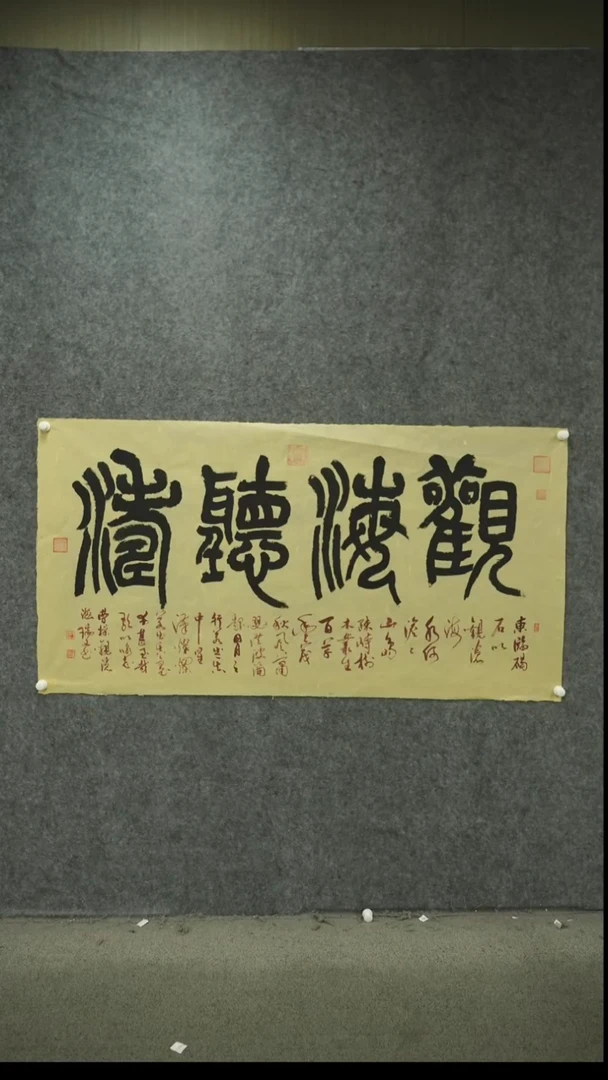 觀海聽濤
東臨碣
石以
觀滄
海
水何
澹々
山島
竦峙樹
木叢生
百草
豐茂
秋風蕭
瑟洪波涌
起日月之
行若出其
中星
漢燦爛
若出其裏
幸甚至哉
歌以詠志
曹操觀滄
海